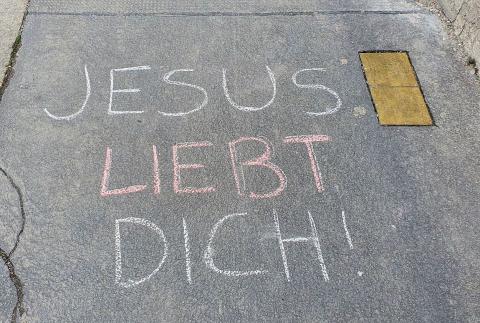 JESUS
LIEBT
DICH!